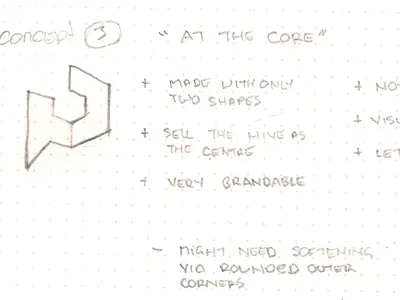 CONCEPT 3 "AT THE CORE"
+ MADE WITH ONLY
TWO SHAPES
+ SELL THE HIVE AS
THE CENTRE
+ VERY BRANDABLE
+ NO
+ VISU
+ LET
- MIGHT NEED SOFTENING
VIA ROUNDED OUTER
CORNERS